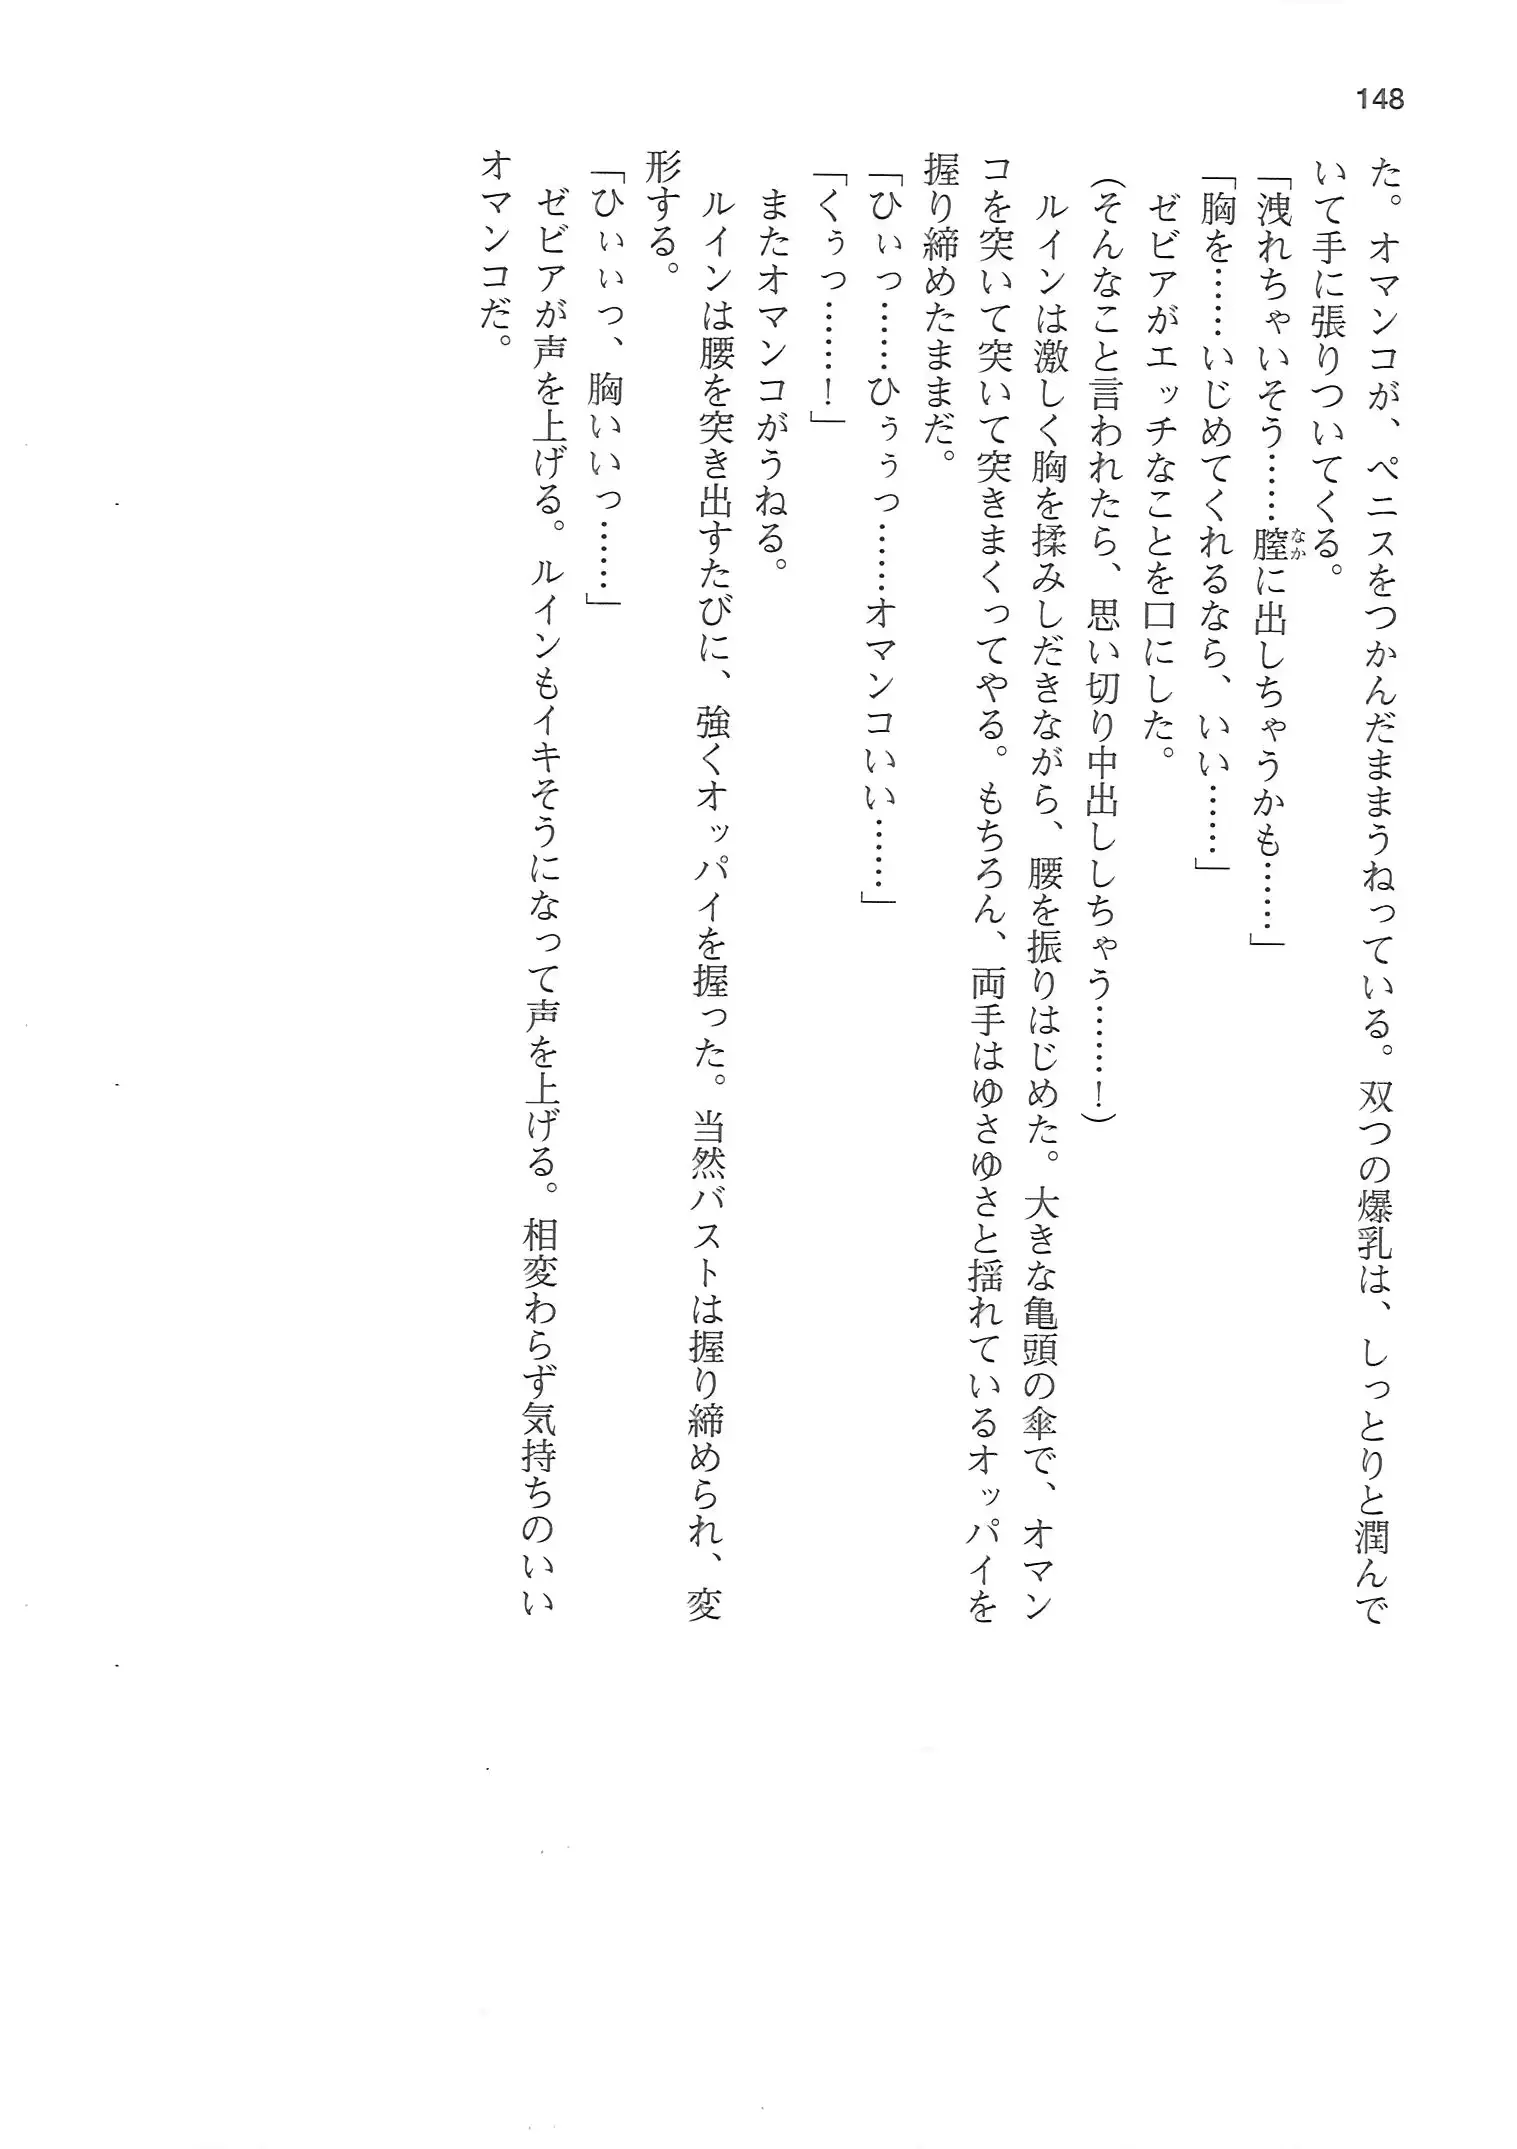 148
た。オマンコが、ペニスをつかんだままうねっている。双つの爆乳は、しっとりと潤んで
いて手に張りついてくる。
「洩れちゃいそう……膣に出しちゃうかも……」
なか
「胸を……いじめてくれるなら、いい……」
ゼビアがエッチなことを口にした。
（そんなこと言われたら、思い切り中出ししちゃう……！）
ルインは激しく胸を揉みしだきながら、腰を振りはじめた。大きな亀頭の傘で、オマン
コを突いて突いて突きまくってやる。もちろん、両手はゆさゆさと揺れているオッパイを
握り締めたままだ。
「ひぃっ……ひぅぅっ……オマンコいい……」
「くぅっ……！」
またオマンコがうねる。
ルインは腰を突き出すたびに、強くオッパイを握った。当然バストは握り締められ、変
形する。
「ひぃぃっ、胸いいっ……」
ゼビアが声を上げる。ルインもイキそうになって声を上げる。相変わらず気持ちのいい
オマンコだ。